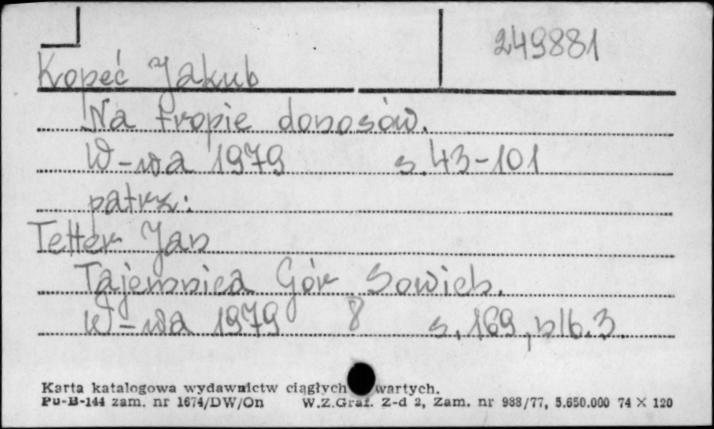 249881
Kopeć Jakub
Na tropie donosów.
W-wa 1979 s. 43-101
patrz:
Tetter Jan
Tajemnica Gór Sowich.
W-wa 1979 8 s. 169, nlb. 3
Karta katalogowa wydawnictw ciągłych wartych.
Pu-B-144 zam. nr 1674/DW/On W.Z.Graf. Z-d 2, Zam. nr 988/77, 5.650.000 74 × 120